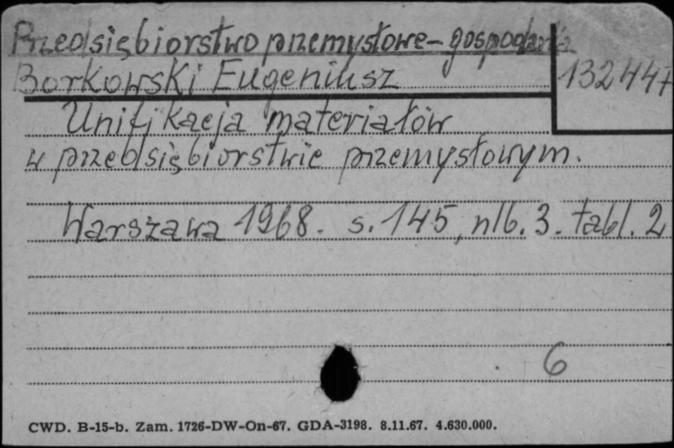 Przedsiębiorstwo przemysłowe - gospodarka
Borkowski Eugeniusz
132447
Unifikacja materiałów
w przedsiębiorstwie przemysłowym.
Warszawa 1968. s. 145, nlb. 3. tabl. 2
6
CWD. B-15-b. Zam. 1726-DW-On-67. GDA-3198. 8.11.67. 4.630.000.